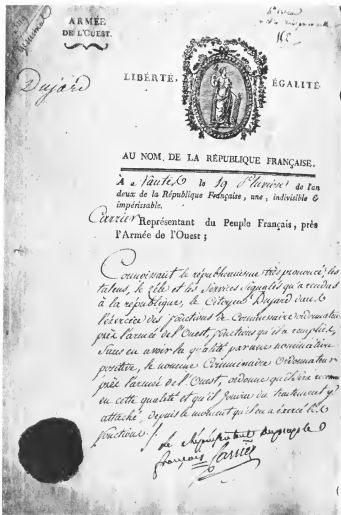 ARMÉE
DE L'OUEST.
Dujard
LIBERTÉ, ÉGALITÉ
AU NOM DE LA RÉPUBLIQUE FRANÇAISE.
A Nantes le 19 Pluviose de l'an
deux de la République Française, une, indivisible &
impérissable.
Carrier Représentant du Peuple Français, près
l'Armée de l'Ouest ;
Connoissant le républicanisme très prononcé, les
talens, le zèle et les services signalés qu'a rendus
à la république, le Citoyen Dujard dans
l'éxercice des fonctions de Commissaire ordonnateur
près l'armée de l'Ouest, fonctions qu'il a remplies,
sans en avoir la qualité par une nomination
positive, le nomme Commissaire Ordonnateur
près l'armée de l'Ouest, ordonne qu'il sera
en cette qualité et qu'il jouira du traitement y
attaché, depuis le moment qu'il en a exercé les
fonctions ./.
Le Représentant du peuple
français Carrier